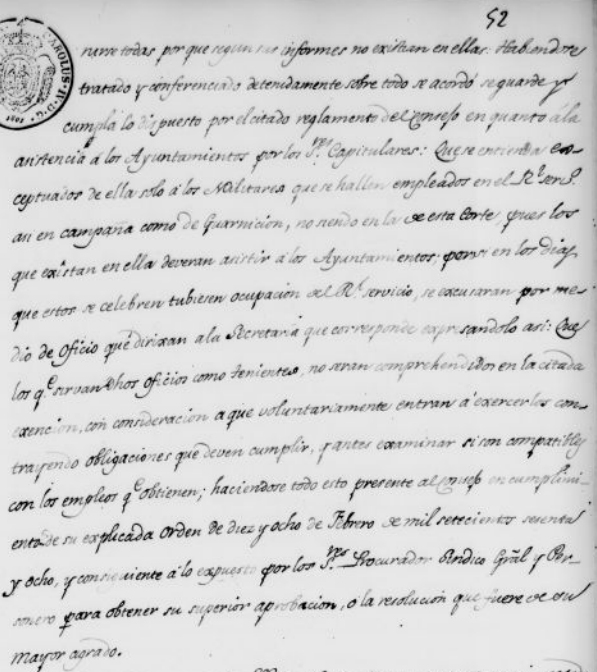 52
CAROLUS
nirve todas por que segun sus informes no existian en ellas: Habiendose
tratado y conferenciado detenidamente sobre todo se acordó se guarde y
cumpla lo dispuesto por el citado reglamento del Consejo en quanto á la
asistencia á los Ayuntamientos por los S.res Capitulares: Que se entienda ex-
ceptuados de ella solo á los Militares que se hallen empleados en el R.l serv.o
asi en campaña como de Guarnicion, no siendo en la de esta Corte, pues los
que existan en ella deveran asistir á los Ayuntamientos; pero si en los dias
que estos se celebren tubiesen ocupacion del R.l servicio, se excusaran por me-
dio de Oficio que dirixan a la Secretaria que corresponde expresandolo asi: Que
los q.e sirvan dhos oficios como tenientes, no seran comprehendidos en la citada
exencion, con consideracion a que voluntariamente entran á exercerlos con-
trayendo obligaciones que deven cumplir, y antes examinar si son compatibles
con los empleos q.e obtienen; haciendose todo esto presente al Consejo en cumplimi-
ento de su explicada orden de diez y ocho de Febrero de mil setecientos sesenta
y ocho, y consiguiente á lo expuesto por los S.res Procurador Sindico Gral y Per-
sonero para obtener su superior aprobacion, o la resolucion que fuere de su
mayor agrado.